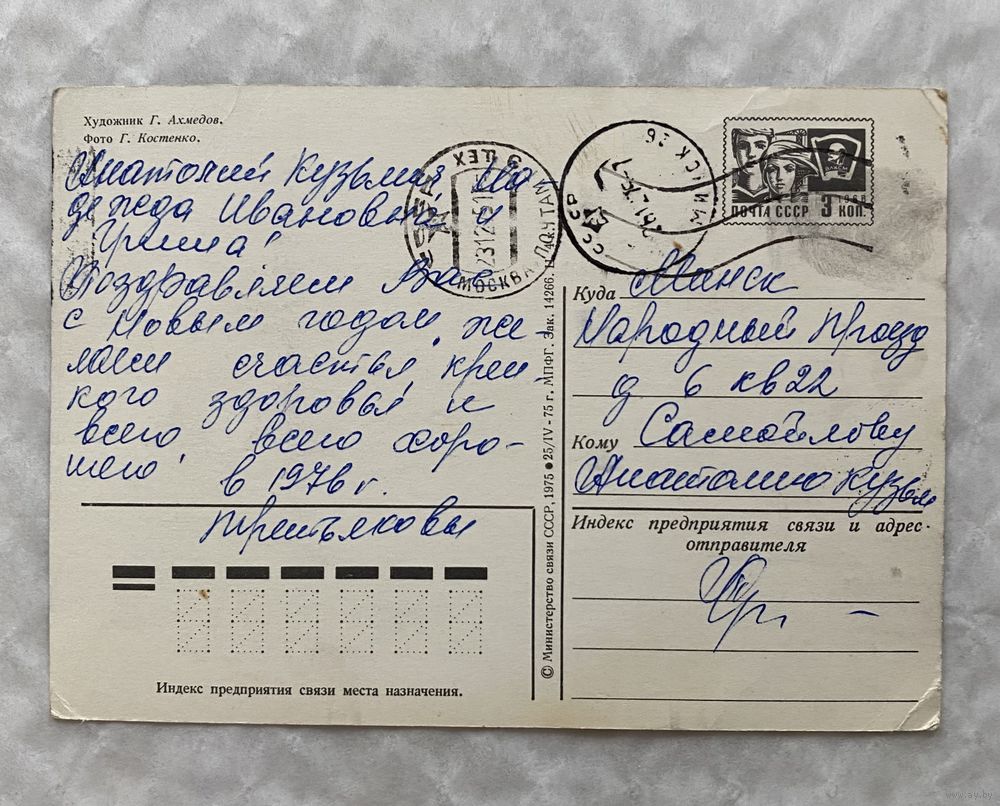 Художник Г. Ахмедов.
Фото Г. Костенко.
Анатолий Кузьмич, На
дежда Ивановна и
Гриша!
Поздравляем Вас
с Новым годом, же-
лаем счастья, креп-
кого здоровья и
всего, всего хоро-
шего
в 1976 г.
Третьяковы
Индекс предприятия связи места назначения.
© Министерство связи СССР, 1975 • 25/IV - 75 г. МПФГ. Зак. 14266.
МОСКВА ПОЧТАМТ
ЦЕХ
СССР
МИНСК 26
ПОЧТА СССР 3 КОП.
Куда Минск
Народный Проезд
д 6 кв 22
Кому Самойлову
Анатолию Кузьм
Индекс предприятия связи и адрес
отправителя
www.ay.by